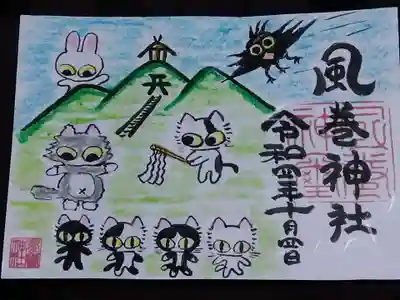 風巻神社
令和四年十月四日